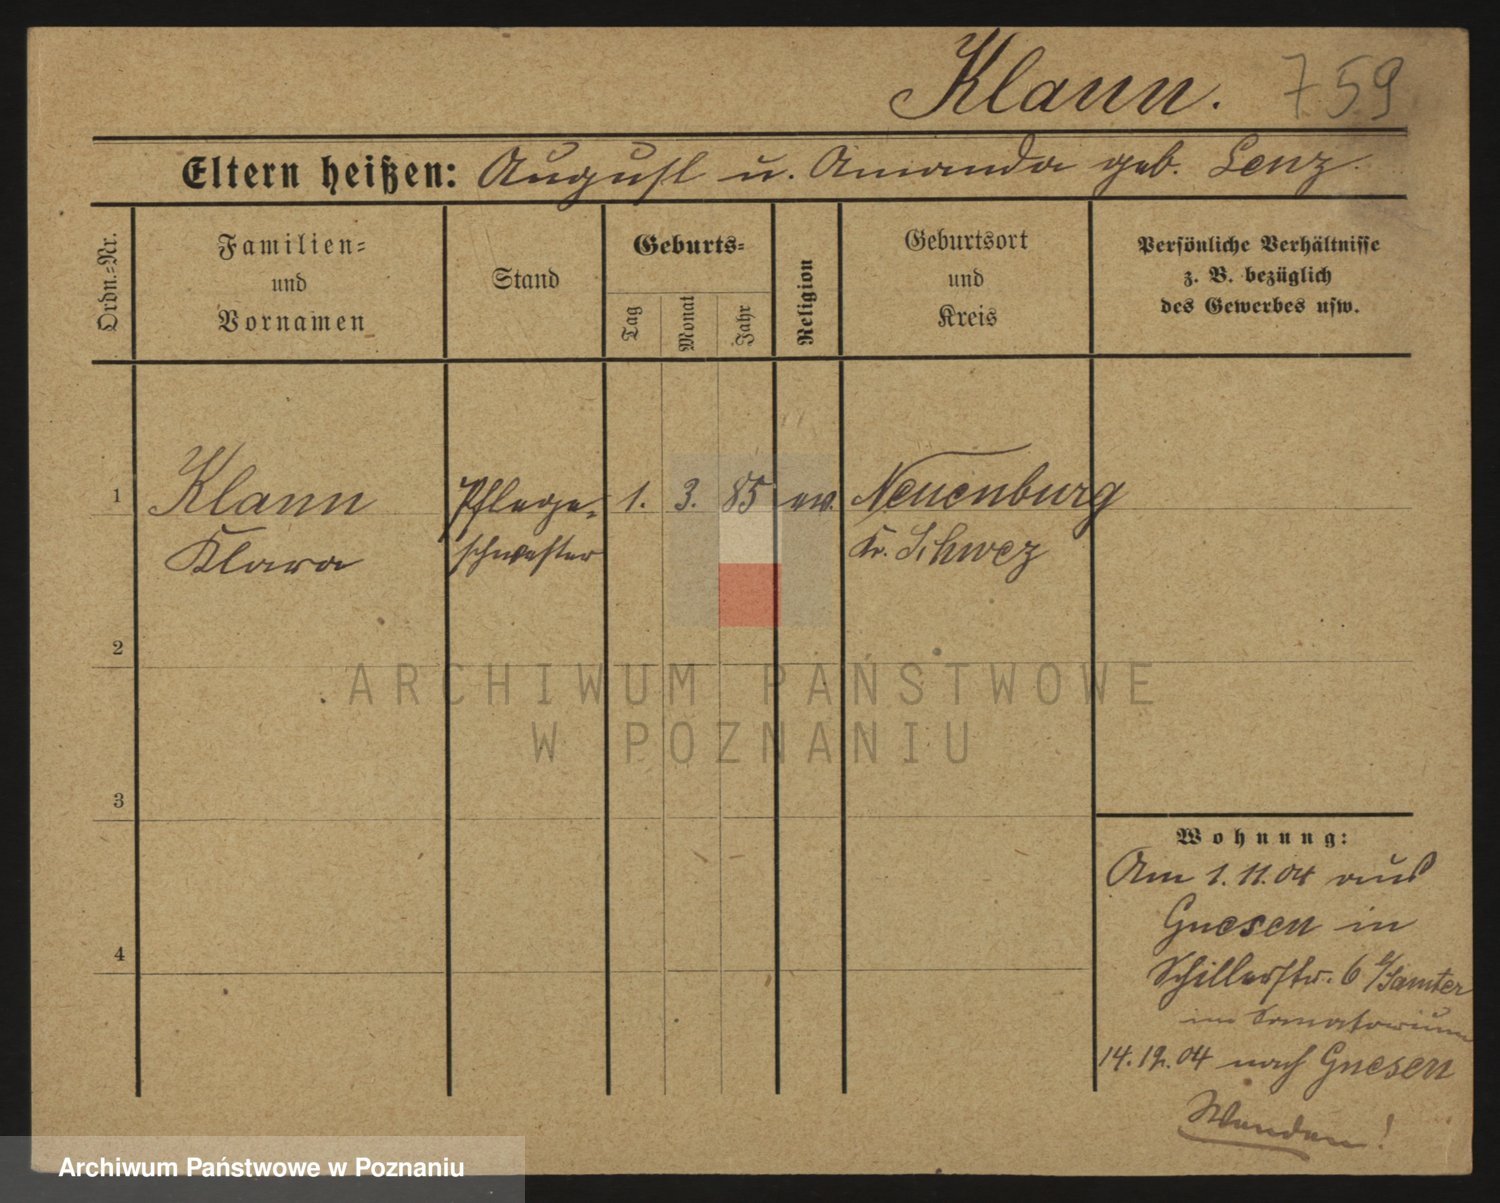 Klann. 759
Eltern heißen: August u. Amanda geb. Lenz.
Ordn.-Nr.
Familien-
und
Vornamen
Stand
Geburts-
Tag
Monat
Jahr
Religion
Geburtsort
und
Kreis
Persönliche Verhältnisse
z. B. bezüglich
des Gewerbes usw.
1
Klann
Klara
Pflege-
schwester
1. 3. 85
ev.
Neuenburg
Kr. Schwez
2
3
4
Wohnung:
Am 1.11.04 aus
Gnesen in
Schillerstr. 6 b/Samter
im Sanatorium
14.12.04 nach Gnesen
Wenden!
ARCHIWUM PAŃSTWOWE
W POZNANIU
Archiwum Państwowe w Poznaniu